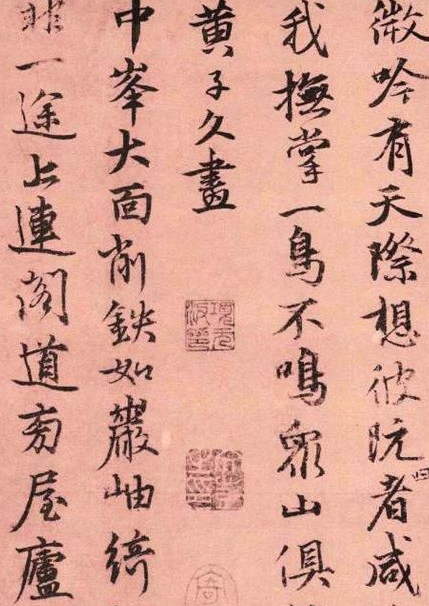 微吟有天際想彼阮者咸
我撫掌一鳥不鳴眾山俱
黃子久畫
中峯大面削鐵如巖岫繞
非一途上連閣道旁屋廬